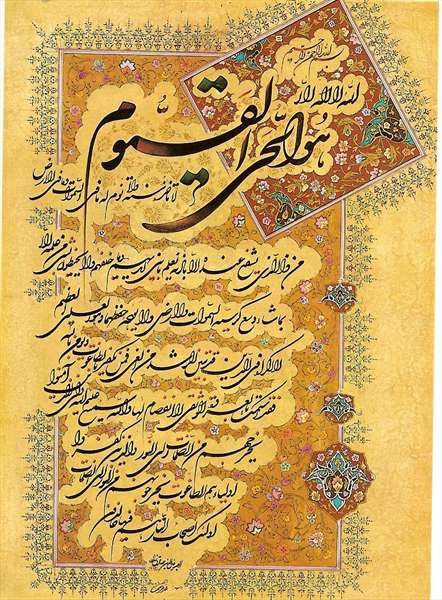 بسم الله الرحمن الرحیم
الله لا اله الا
هو الحی القیوم
لا تاخذه سنة ولا نوم له ما فی السموات وما فی الارض
من ذا الذی یشفع عنده الا باذنه یعلم ما بین ایدیهم وما خلفهم ولا یحیطون بشیء من علمه الا
بما شاء وسع کرسیه السموات والارض ولا یوده حفظهما وهو العلی العظیم
لا اکراه فی الدین قد تبین الرشد من الغی فمن یکفر بالطاغوت ویؤمن بالله
فقد استمسک بالعروة الوثقی لا انفصام لها والله سمیع علیم الله ولی الذین آمنوا
یخرجهم من الظلمات الی النور والذین کفروا
اولیاؤهم الطاغوت یخرجونهم من النور الی الظلمات
اولئک اصحاب النار هم فیها خالدون